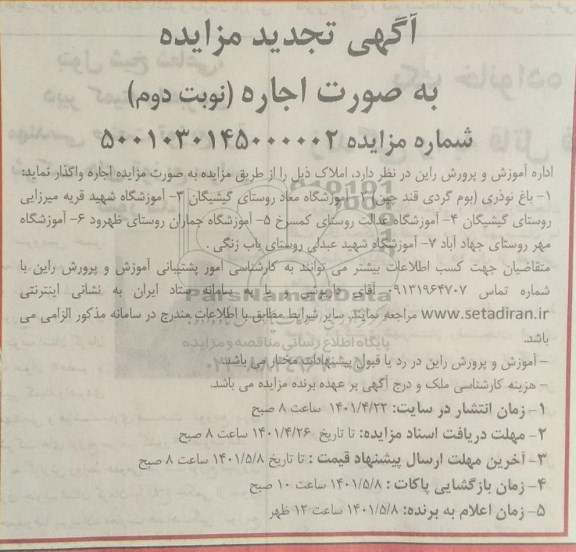 آگهی تجدید مزایده
به صورت اجاره (نوبت دوم)
شماره مزایده ۵۰۰۱۰۳۰۱۴۵۰۰۰۰۰۲
اداره آموزش و پرورش راین در نظر دارد، املاک ذیل را از طریق مزایده به صورت مزایده اجاره واگذار نماید:
۱- باغ نوذری (بوم گردی قند چین) ۲- آموزشگاه معاد روستای گیشیگان ۳- آموزشگاه شهید قریه میرزایی
روستای گیشیگان ۴- آموزشگاه عدالت روستای کمسرخ ۵- آموزشگاه جماران روستای ظهرود ۶- آموزشگاه
مهر روستای جهاد آباد ۷- آموزشگاه شهید عبدلی روستای باب زنگی .
متقاضیان جهت کسب اطلاعات بیشتر می توانند به کارشناسی امور پشتیبانی آموزش و پرورش راین با
شماره تماس ۰۹۱۳۱۹۶۴۷۰۷ آقای و یا به سامانه ستاد ایران به نشانی اینترنتی
www.setadiran.ir مراجعه نمایند. سایر شرایط مطابق با اطلاعات مندرج در سامانه مذکور الزامی می
باشد.
- آموزش و پرورش راین در رد یا قبول پیشنهادات مختار می باشد.
- هزینه کارشناسی ملک و درج آگهی بر عهده برنده مزایده می باشد.
۱- زمان انتشار در سایت: ۱۴۰۱/۴/۲۲ ساعت ۸ صبح
۲- مهلت دریافت اسناد مزایده: تا تاریخ ۱۴۰۱/۴/۲۶ ساعت ۸ صبح
۳- آخرین مهلت ارسال پیشنهاد قیمت : تا تاریخ ۱۴۰۱/۵/۸ ساعت ۸ صبح
۴- زمان بازگشایی پاکات : ۱۴۰۱/۵/۸ ساعت ۱۰ صبح
۵- زمان اعلام به برنده: ۱۴۰۱/۵/۸ ساعت ۱۲ ظهر
ParsNamadData
پایگاه اطلاع رسانی مناقصه و مزایده